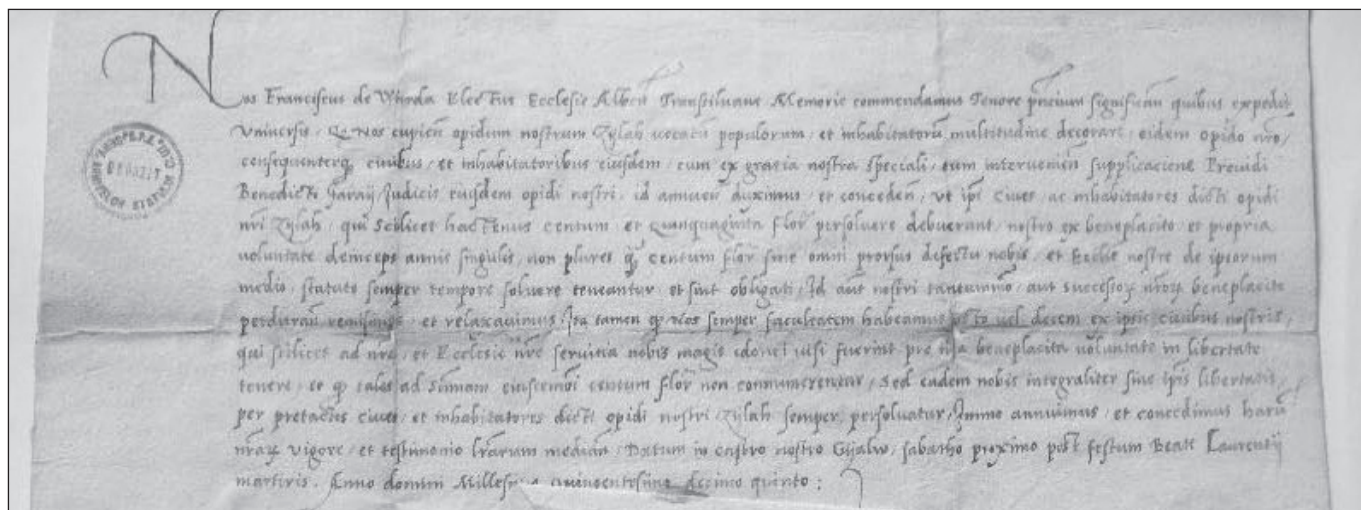 Nos Franciscus de Warda Electus Ecclesie Alben Transsiluane Memorie commendamus Tenore pncium significan quibus expedit
Vniuersis, Q Nos cupien opidum nostrum Zylah uocatu populorum, et inhabitatoru multitudine decorare, eidem opido nro,
consequenterq ciuibus, et inhabitatoribus eiusdem, cum ex gracia nostra speciali, tum interuenien supplicacione Prouidi
Benedicti Garay, Judicis eiusdem opidi nostri, id annuen duximus, et conceden, vt ipi Ciues, ac inhabitatores dicti opidi
nri Zylah, qui Scilicet hactenus centum, et Quinquaginta flor persoluere debuerant, nostro ex beneplacito, et propria
voluntate deinceps annis singulis, non plures q centum flor sine omni prorsus defectu nobis, et Ecclie nostre de ipsorum
medio, statuto semper tempore soluere teneantur, et sint obligati, Id aut nostri tantummo, aut successor nror beneplacito
perduran, et relaxauimus, Ita tamen q Nos semper facultatem habeamus octo uel decem ex ipsis ciuibus nostris,
qui scilicet ad nra, et Ecclesie nre seruitia nobis magis idonei uisi fuerint pro nra beneplacita uoluntate in libertate
tenere, et q tales ad Summam eiuscemodi centum flor non connumerentur, Sed eadem nobis integraliter sine ipis libertatis,
per pretactos ciues, et inhabitatores dicti opidi nostri Zylah semper persoluatur, Immo annuimus, et concedimus haru
nrar vigore, et testimonio lrarum median, Datum in castro nostro Gyalw, sabatho proximo post festum Beati Laurentij
martiris. Anno domini Millesimo quingentesimo decimo quinto: